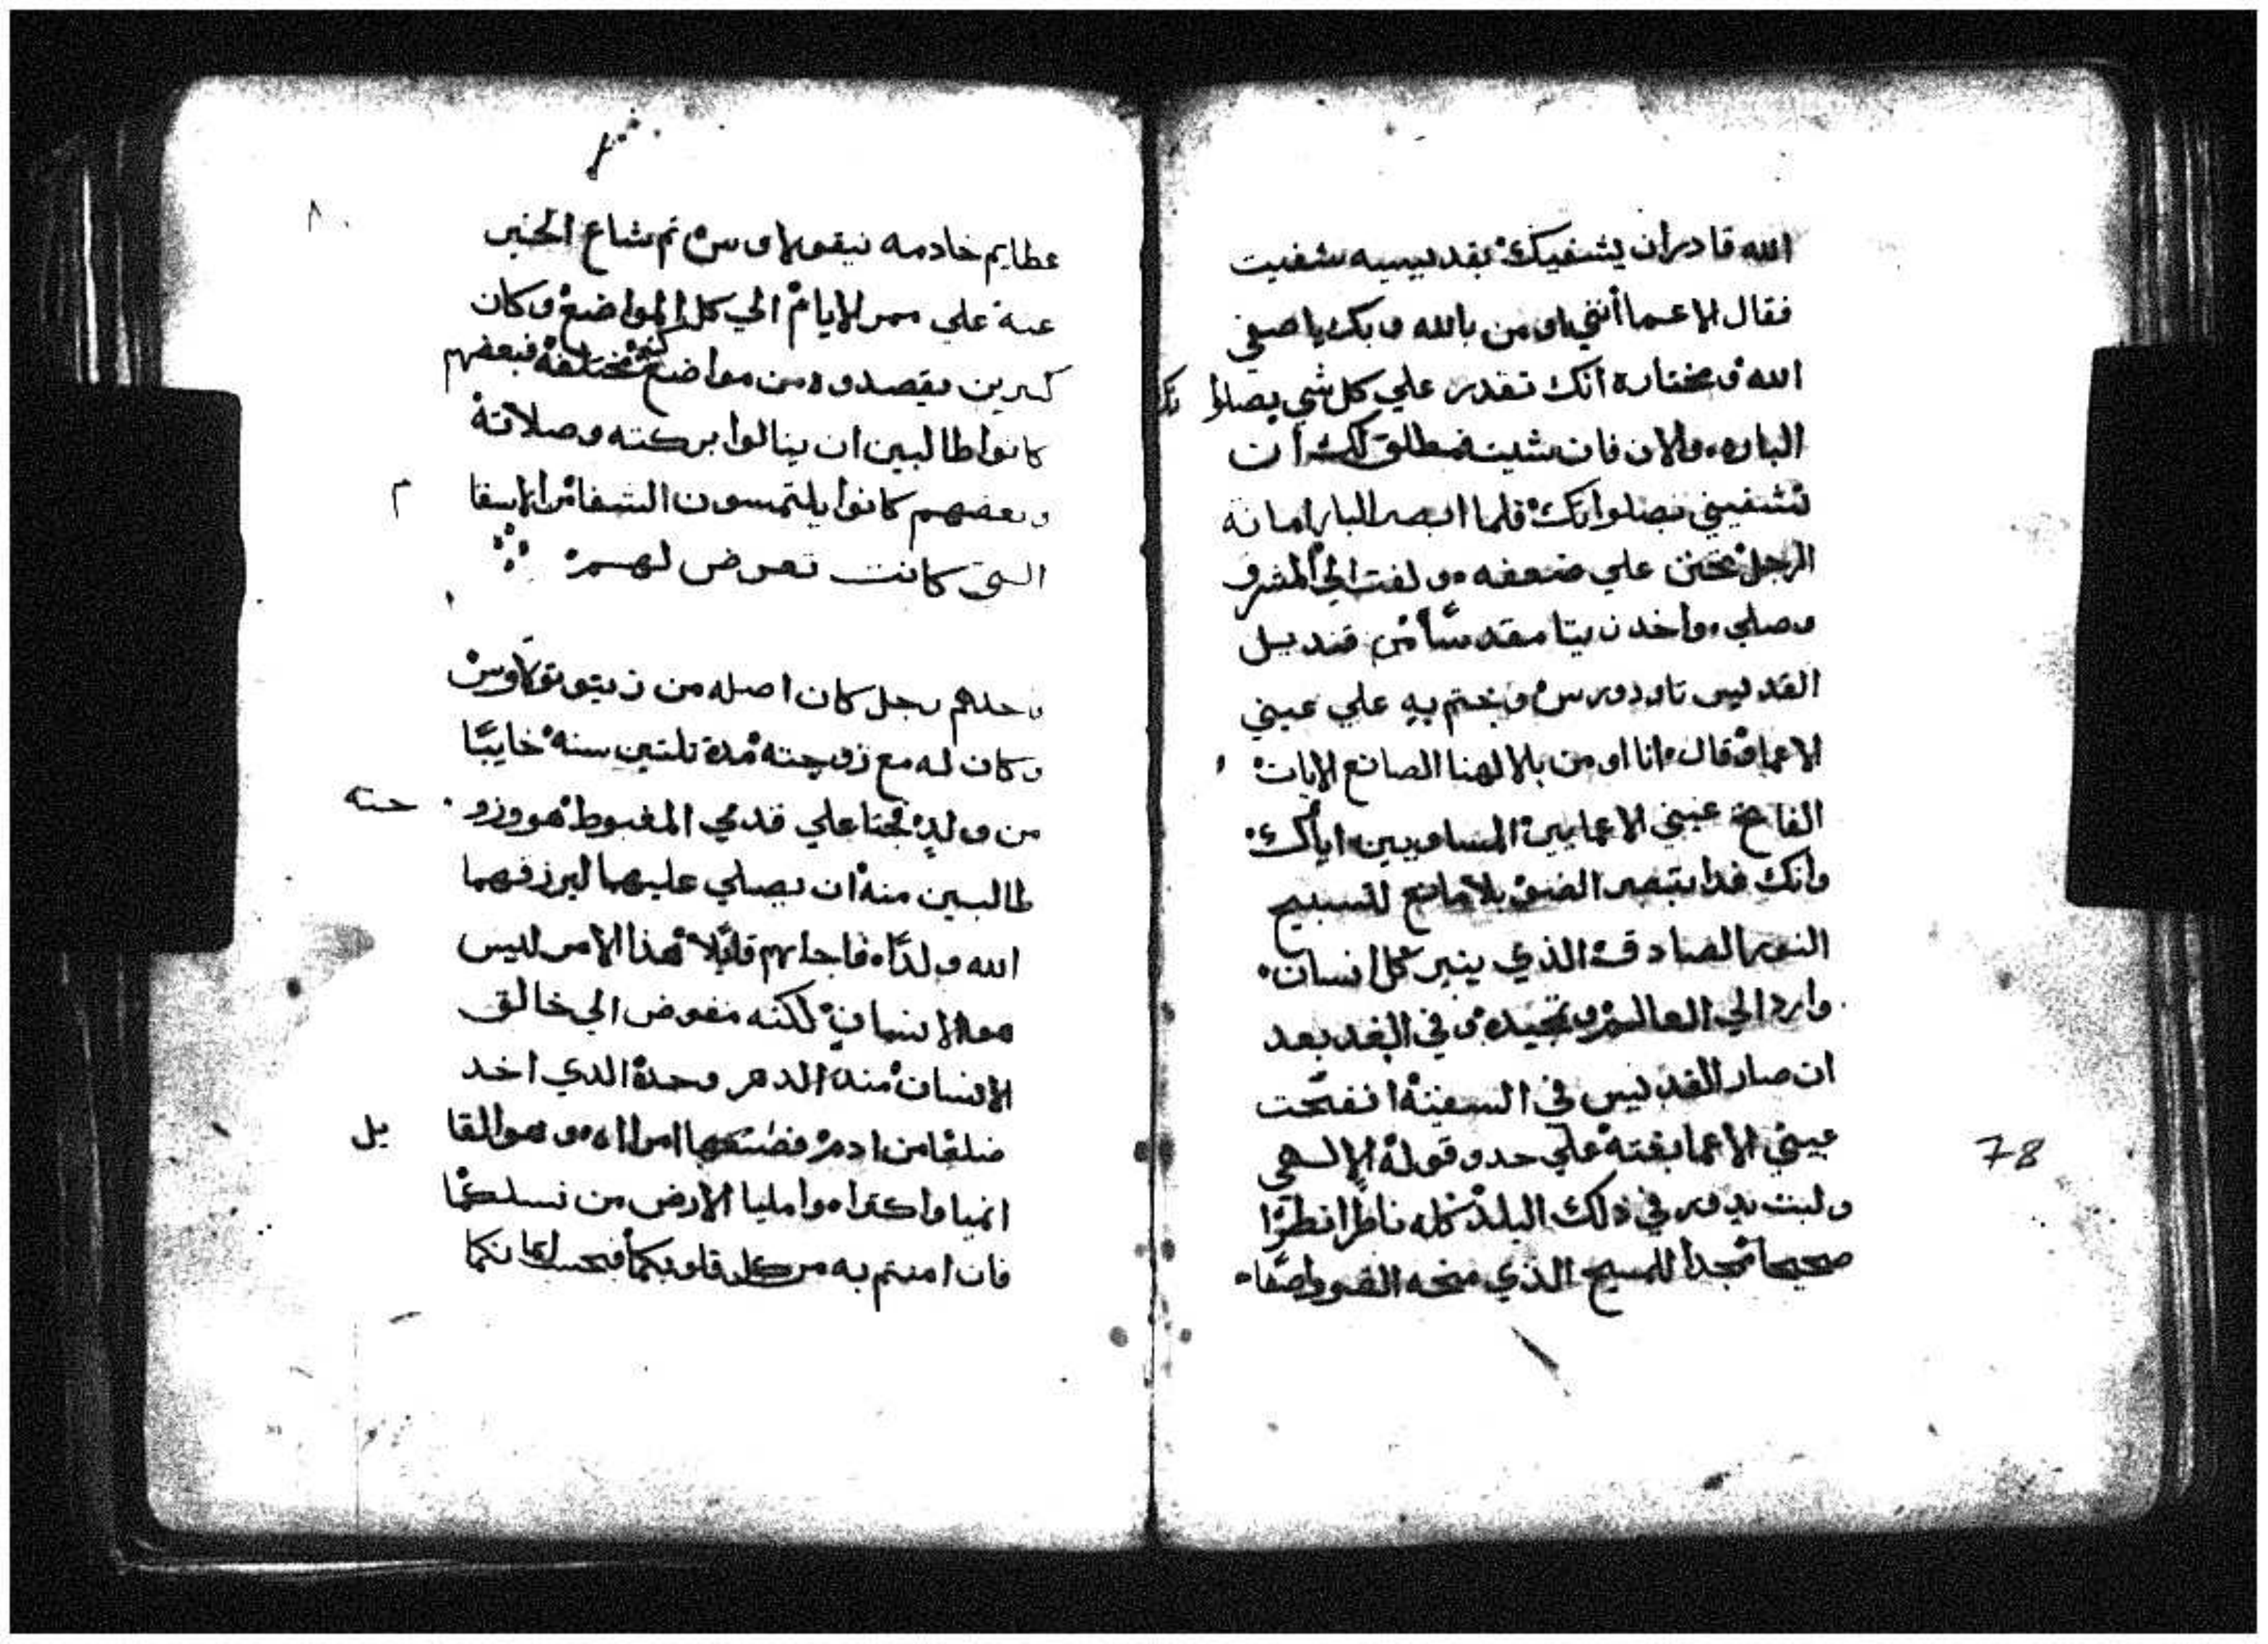 الله قادر ان يشفيك بقديسيه شفيت
فقال الاعما أنني اومن بالله وبك ياصفي
الله ومختاره انك تقدر علي كل شي بصلوا تك
الباره والان فان شيت فمطلق لك ان
تشفيني بصلواتك فلما ابصر البار امانة
الرجل تحنن علي ضعفه ولفت الي المشرق
وصلي واخد زيتا مقدساً من قنديل
القديس تاودورس وختم به علي عيني
الاعما وقال انا اومن بالالهنا الصانع الايات
الفاتح عيني الاعمايين المساويين اياك
وانك غدا تبصر الضو بلا مانع لتسبيح
النور الصادق الذي ينير كل انسان
وارد الي العالم وتمجيده وفي الغد بعد
ان صار القديس في السفينة انفتحت
عيني الاعما بغتة علي حدو قوله الالهي
ولبت يدور في ذلك البلد كله ناظرا نظرًا
صحيحا ممجدا للمسيح الذي منحه الضو واصفا
78
عظايم خادمه نيقولاوس تم شاع الخبر
عنه علي ممر الايام الي كل المواضع وكان
كتيرين يقصدوه من مواضع كتيرة مختلفة فبعضهم
كانوا طالبين ان ينالوا بركته وصلاته
وبعضهم كانوا يلتمسون الشفا من الاسقا م
التي كانت تعرض لهم
وحدهم رجل كان اصله من
وكان له مع زوجته مدة تلتين سنة خايبًا
من ولدٍ تجتا علي قدمي المغبوط هو وزو جته
طالبين منه ان يصلي عليهما ليرزقهما
الله ولدًا فاجابهم قايلا هذا الامر ليس
هو الانسان لكنه مفوض الي خالق
الانسان منذ الدهر وحدة الدي اخد
ضلعًا من ادم وصنعها امراه وهو القا يل
انميا واكترا وامليا الارض من نسلكما
فان امنتم به من كل قلوبكما فبحسب ايمانكما